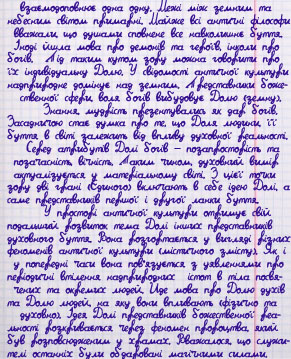 взаємодоповнює одна одну. Межі між земним та
небесним світом примарні. Майже всі античні філософи
вважали, що душами сповнене все навколишнє буття.
Іноді йшла мова про демонів та героїв, інколи про
богів. Під таким кутом зору можна говорити про
їх індивідуальну Долю. У свідомості античної культури
надприродне домінує над земним. Представники боже-
ственної сфери, воля богів вибудовує Долю (земну).
Знання, мудрість презентувались як дар богів.
Засадничою стає думка про те, що Доля людини, її
буття в світі залежить від впливу духовної реальності.
Серед атрибутів Долі богів – позапросторість та
позачасність, вічність. Таким чином, духовний вимір
актуалізується у матеріальному світі. З цієї точки
зору дві грані (Єдиного) включають в себе ідею Долі, а
саме представників першої і другої ланки буття.
У просторі античної культури отримує свій
подальший розвиток тема Долі інших представників
духовного буття. Вона розгортається у вигляді різних
феноменів античної культури (містичного змісту). Як і
у попередні часи вона пов'язується з уявленнями про
періодичні втілення надприродних істот в тіла посвя-
чених та окремих людей. Йде мова про Долю духів
та Долю людей, на яку вони впливають (фізично та
духовно). Ідея Долі представників божественної реа-
льності розкривається через феномен пророцтва, який
був розповсюдженим у храмах. Вважалося, що служи-
телі останніх були обдаровані магічними силами,